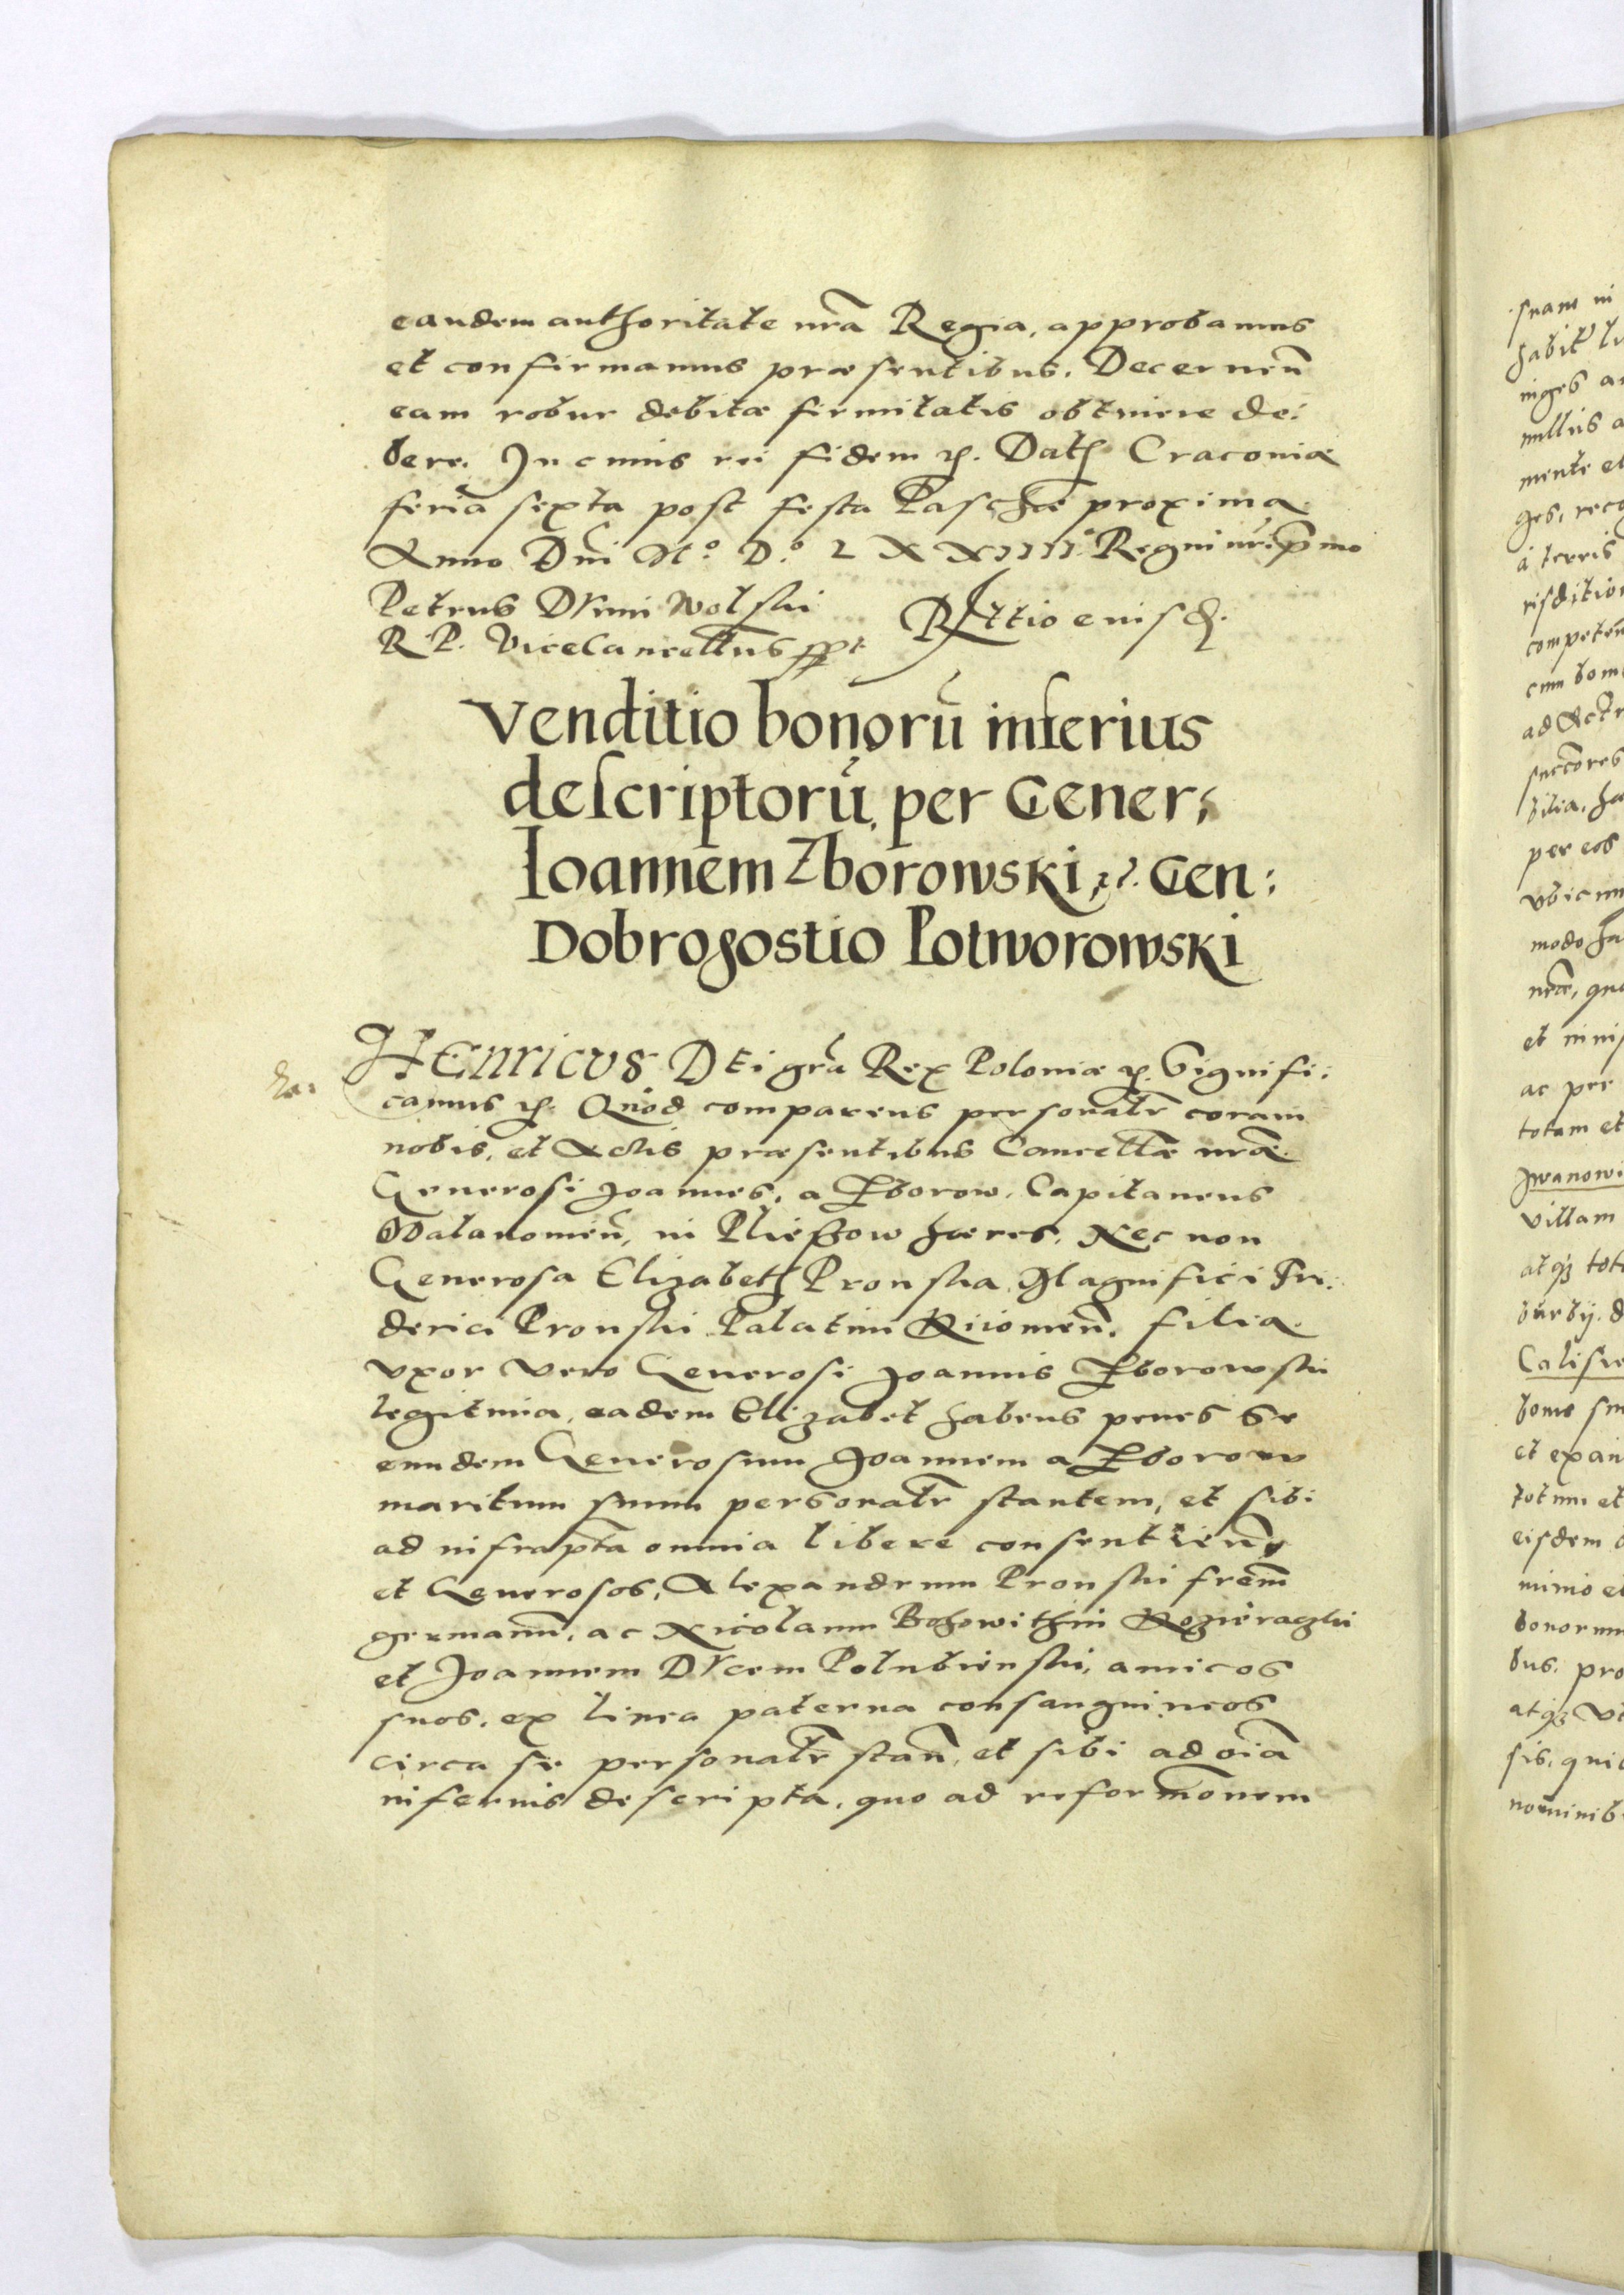 eandem authoritate nrã Regia, approbamus
et confirmamus præsentibus. Decernen̄
eam robur debitæ firmitatis obtinere de:
bere. In cuius rei fidem etc. Datħ Cracoviæ
feria sexta post festa Paschæ proxima
Anno Dn̄i M.º D.º LXXIIII.º Regni nr̄i pmo
Petrus Dunin Wolski
R. P. Vicecancellr̄us sspt
Venditio bonorū inferius
descriptorū, per Gener:
Ioannem Zborowski, etc. Gen:
Dobrogostio Potworowski
HENRICVS Dei grã Rex Poloniæ etc. Signifi:
camus etc. Quod comparens personalr̄ coram
nobis, et Actis præsentibus Cancellæ nræ
Generosi Joannes, a Zborow, Capitaneus
Walanomen̄, in Plieszow hæres. Nec non
Generosa Elizabeth Pronska Magnifici Fri:
derici Pronski Palatini Kiiomen̄. filia
vxor vero Generosi Joannis Zborowski
legitima, eadem Elizabet habens penes se
eundem Generosum Joannem a Zborow
maritum suum personalr̄ stantem, et sibi
ad infrap̄ta omnia libere consentien̄
et Generosos, Alexandrum Pronski frem̄
germanū, ac Nicolaum Bohowithin Kozieraczki
et Joannem Ducem Polubienski, amicos
suos, ex linea paterna consanguineos
circa se personalr̄ stan̄, et sibi ad oīa
inferius descripta, quo ad reformōnem
suam in
habit
mente et
a terris
competen̄
cum
per eos
et
ac per
totam et
Iwanowi
villam
atqz
Calisie
et
totum et
eisdem
bonorum
bus. pro
atqz
sis, qui